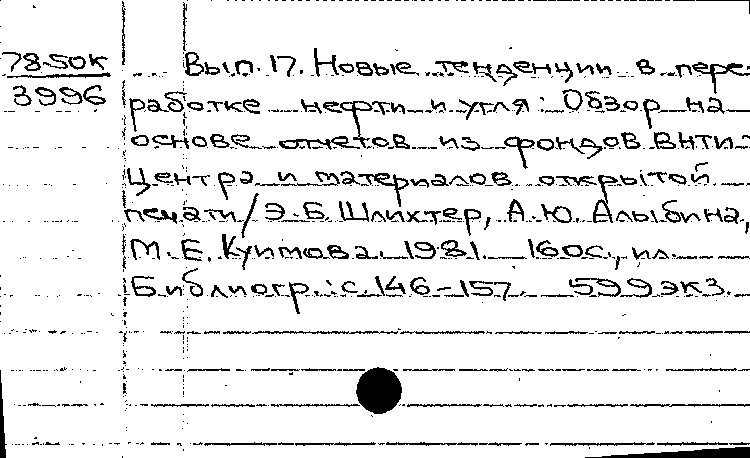 78-50к
3996
Вып. 17. Новые тенденции в пере-
работке нефти и угля: Обзор на
основе отчетов из фондов ВНТИ-
Центра и материалов открытой
печати / Э.Б. Шлихтер, А.Ю. Алыбина,
М.Е. Куимова. 1981. 160с., ил.
Библиогр.: с. 146-157. 599 экз.